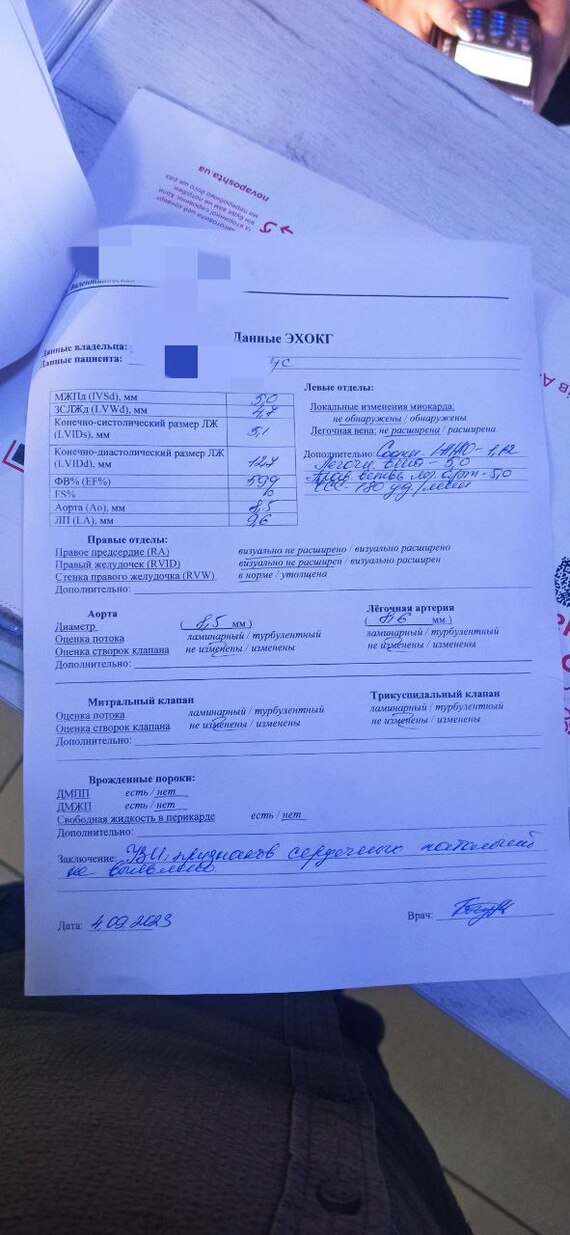 novaposhta.ua
Данные ЭХОКГ
Данные владельца:
Данные пациента:
ЧС
МЖПд (IVSd), мм 5,0
ЗСЛЖд (LVWd), мм 4,7
Конечно-систолический размер ЛЖ (LVIDs), мм 5,1
Конечно-диастолический размер ЛЖ (LVIDd), мм 12,7
ФВ% (EF%)
FS%
Аорта (Ao), мм 8,5
ЛП (LA), мм 9,6
Левые отделы:
Локальные изменения миокарда:
не обнаружены / обнаружены
Легочная вена: не расширена / расширена
Дополнительно: ЛП/АО - 1,12
- 5,0
- 5,0
ЧСС - 180 уд/мин
Правые отделы:
Правое предсердие (RA) визуально не расширено / визуально расширено
Правый желудочек (RVID) визуально не расширен / визуально расширен
Стенка правого желудочка (RVW) в норме / утолщена
Дополнительно:
Аорта
Диаметр ( 8,5 мм )
Оценка потока ламинарный / турбулентный
Оценка створок клапана не изменены / изменены
Дополнительно:
Лёгочная артерия
( 8,6 мм )
ламинарный / турбулентный
не изменены / изменены
Митральный клапан
Оценка потока ламинарный / турбулентный
Оценка створок клапана не изменены / изменены
Дополнительно:
Трикуспидальный клапан
ламинарный / турбулентный
не изменены / изменены
Врожденные пороки:
ДМПП есть / нет
ДМЖП есть / нет
Свободная жидкость в перикарде есть / нет
Дополнительно:
Заключение: признаков сердечных патологий
не выявлено
Дата: 4.09.2023
Врач: